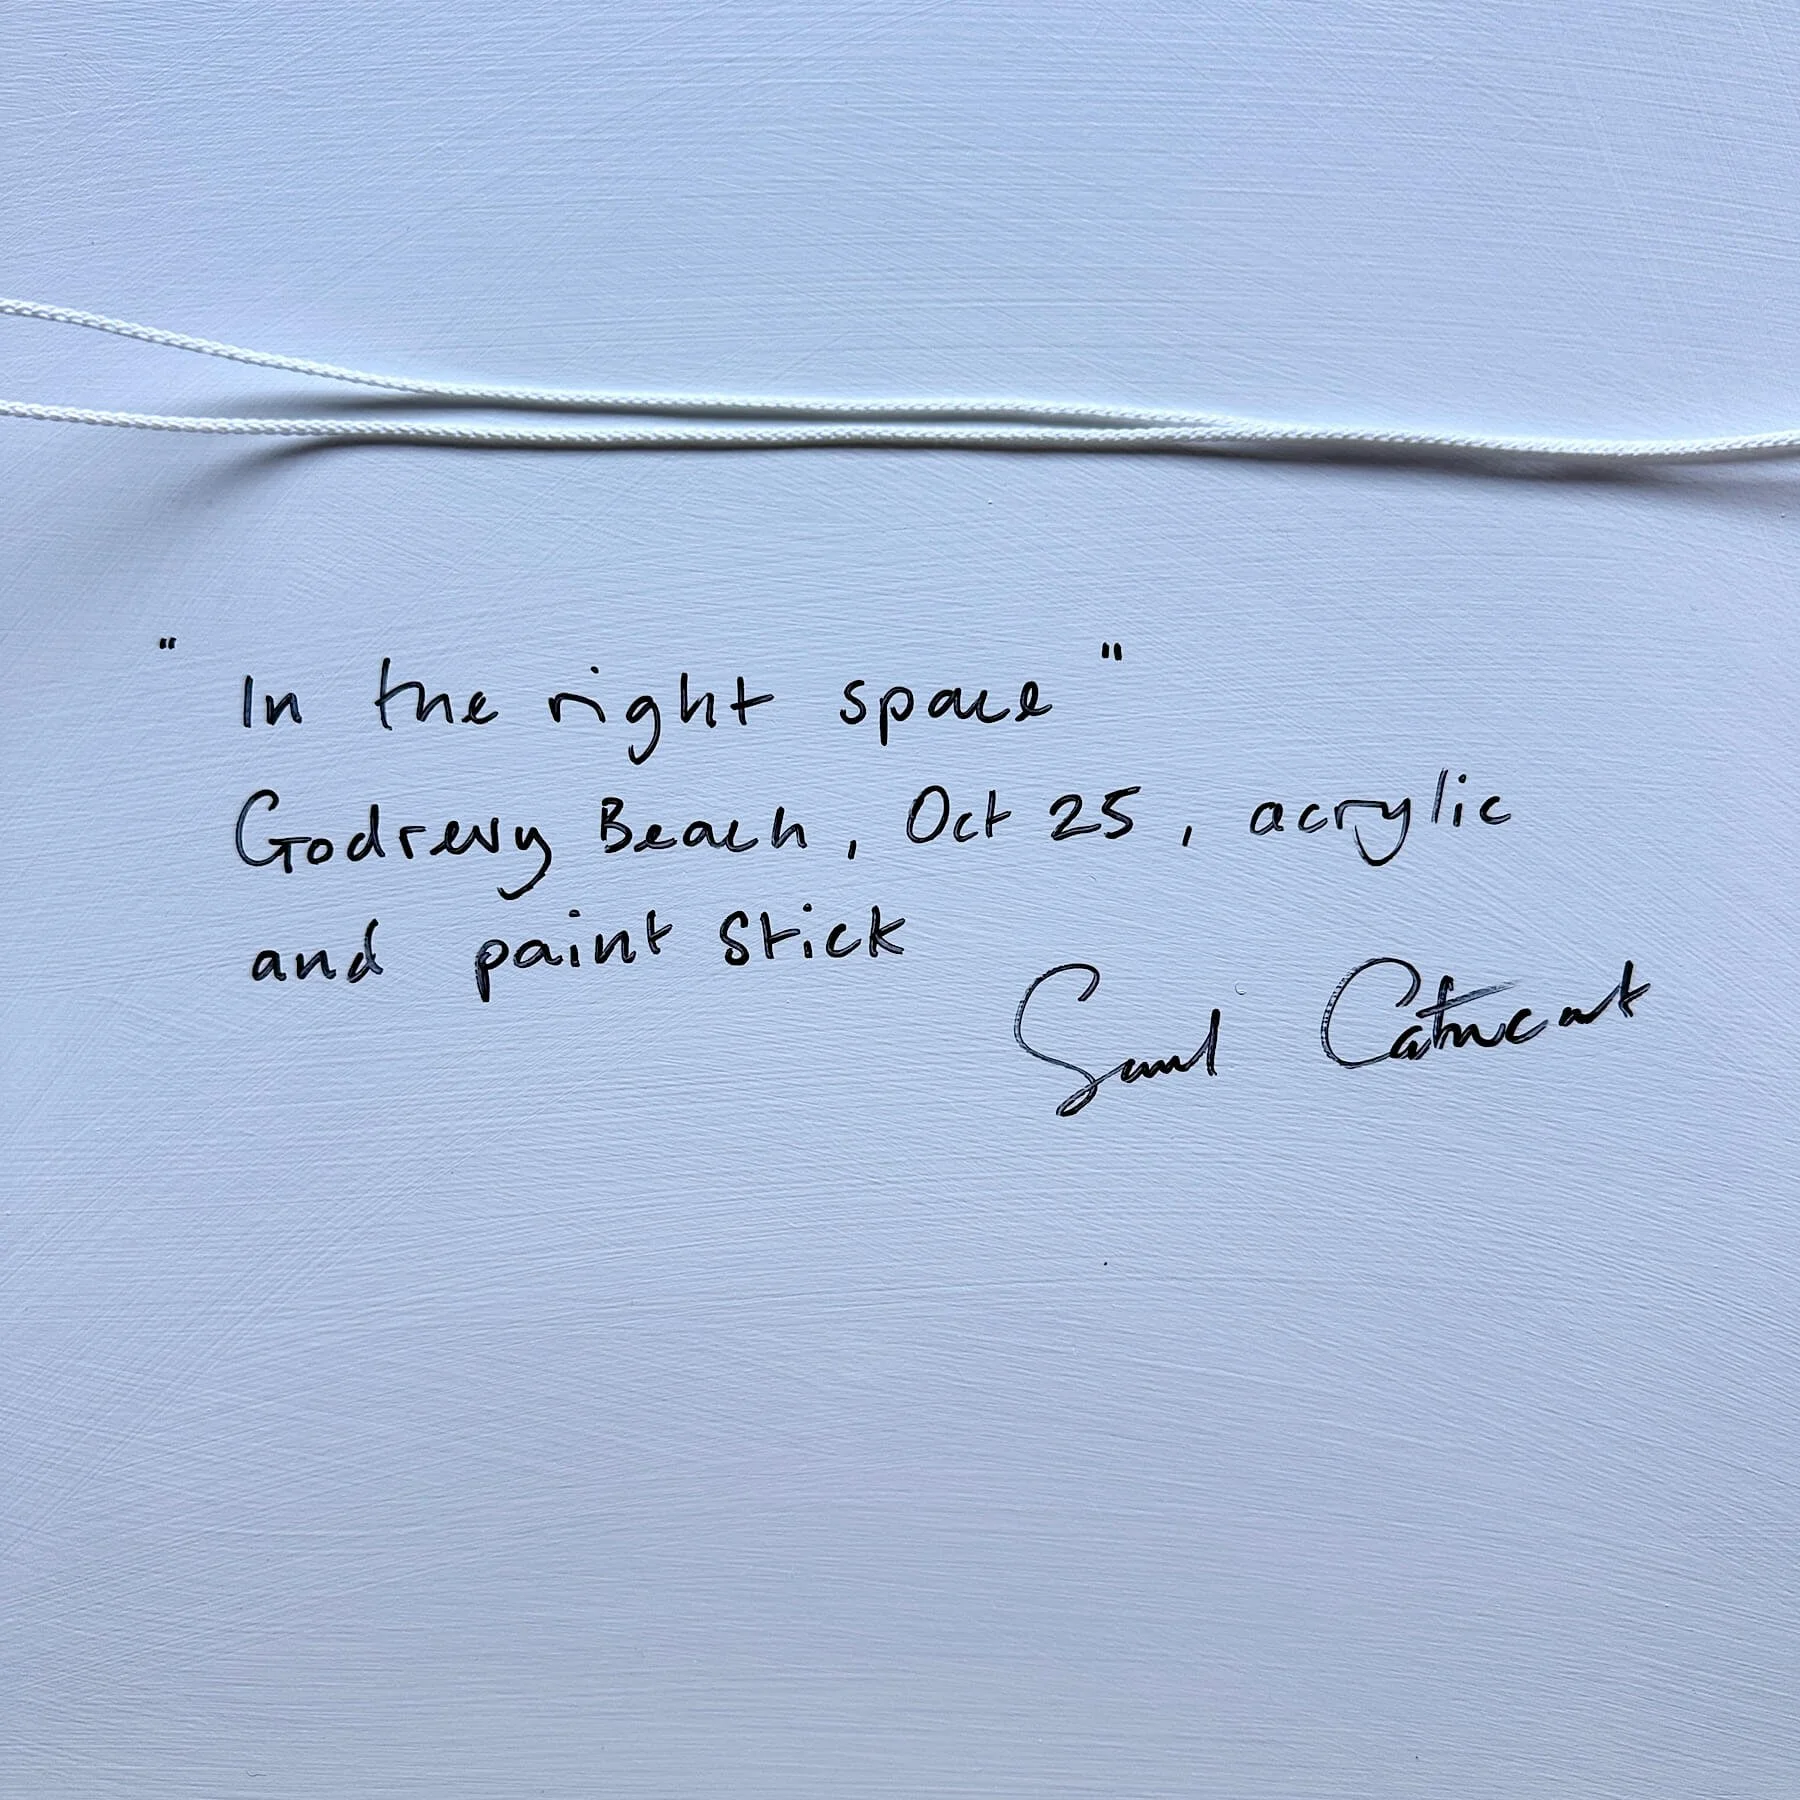 "In the right space"
Godrevy Beach, Oct 25, acrylic
and paint stick
Saul Cathcart